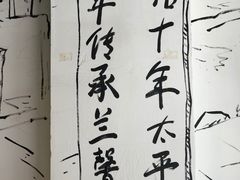 十年太平
年传承兰馨